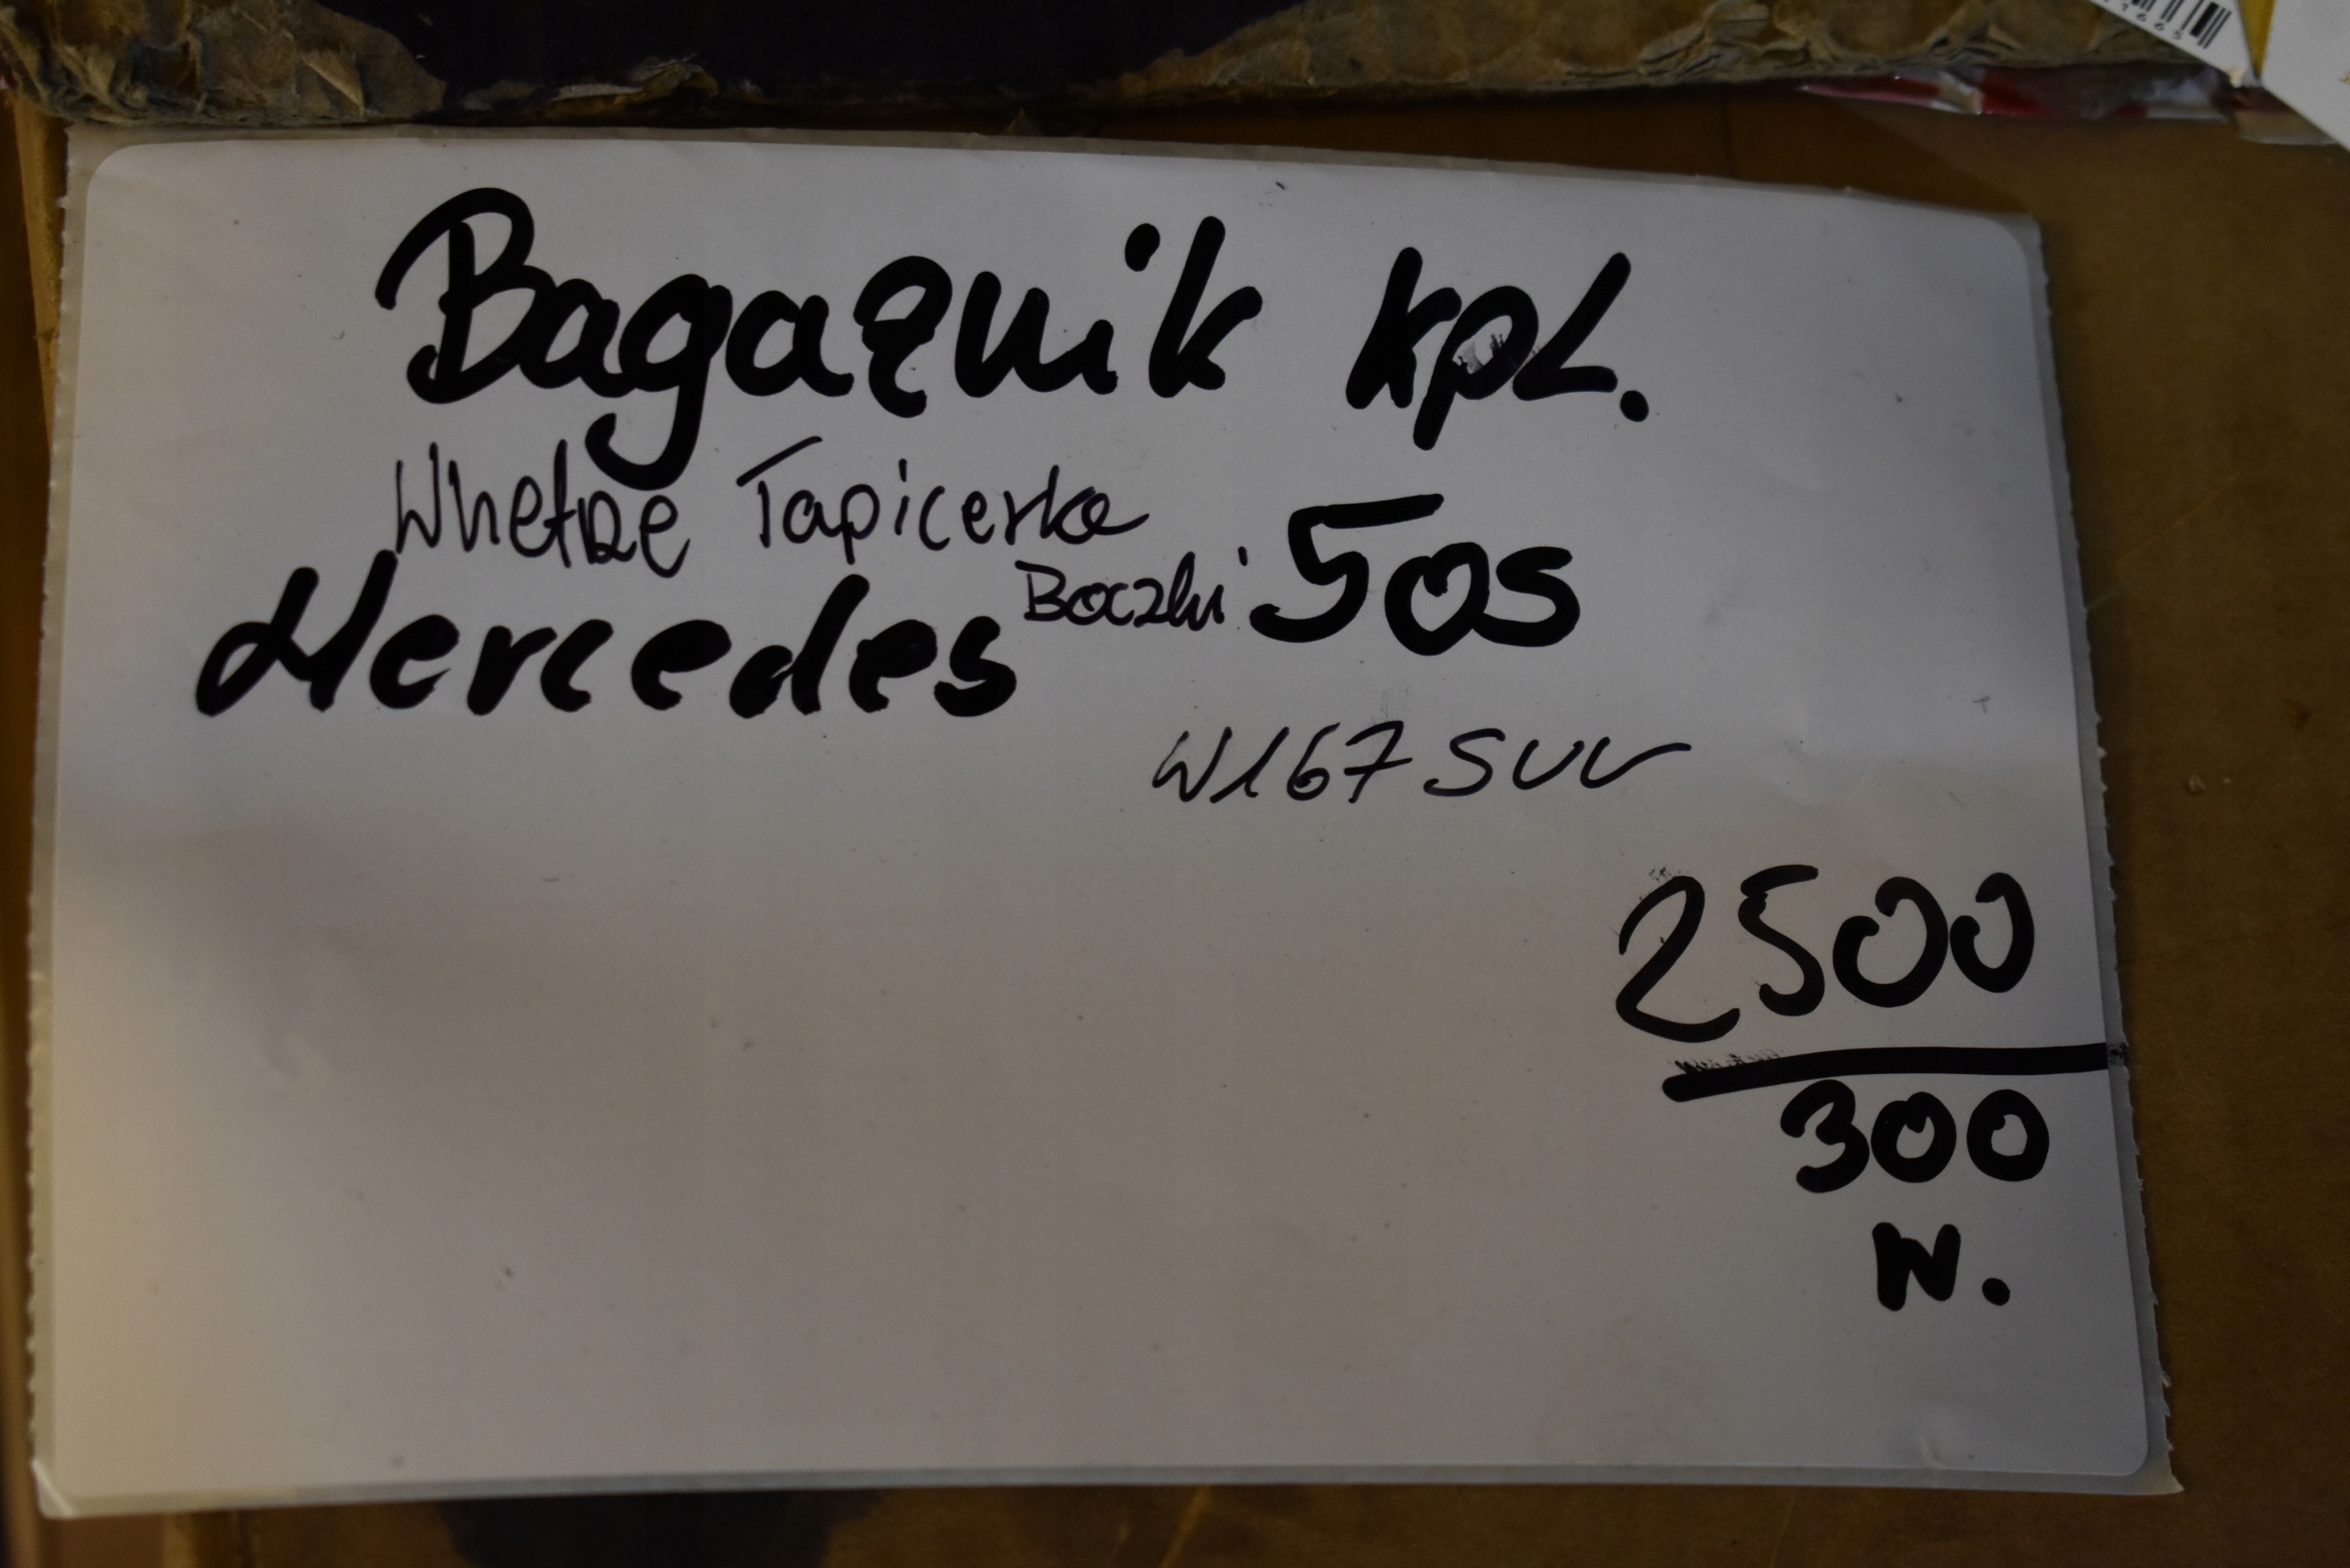 Bagaznik kpl.
Whetrze Tapicerka
Boczki
Mercedes 50s
W167 SUV
2500
300
N.